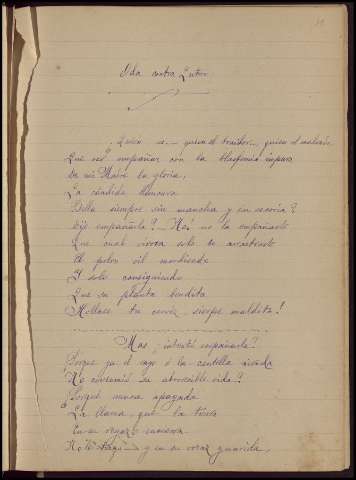 Oda contra Lutero
¿Quien es quien el traidor, quien el malvado
Que osó empañar con la blasfemia impura
De mi Madre la gloria,
La cándida blancura
Bella siempre sin mancha y sin escoria?
Dije empañarla? No! no la empañaste
Que cual víbora solo te arrastraste
El polvo vil mordiendo
Y solo consiguiendo
Que su planta bendita
Hollase tu cerviz, sierpe maldita!
Mas ¿intentó empañarla?
¿Porque ya el rayo ó la centella airada
No consumió su aborrecible vida?
¿Porqué nunca apagada
La llama, que la tierra
En su regazo encierra
No le tragó y en su voraz guarida,